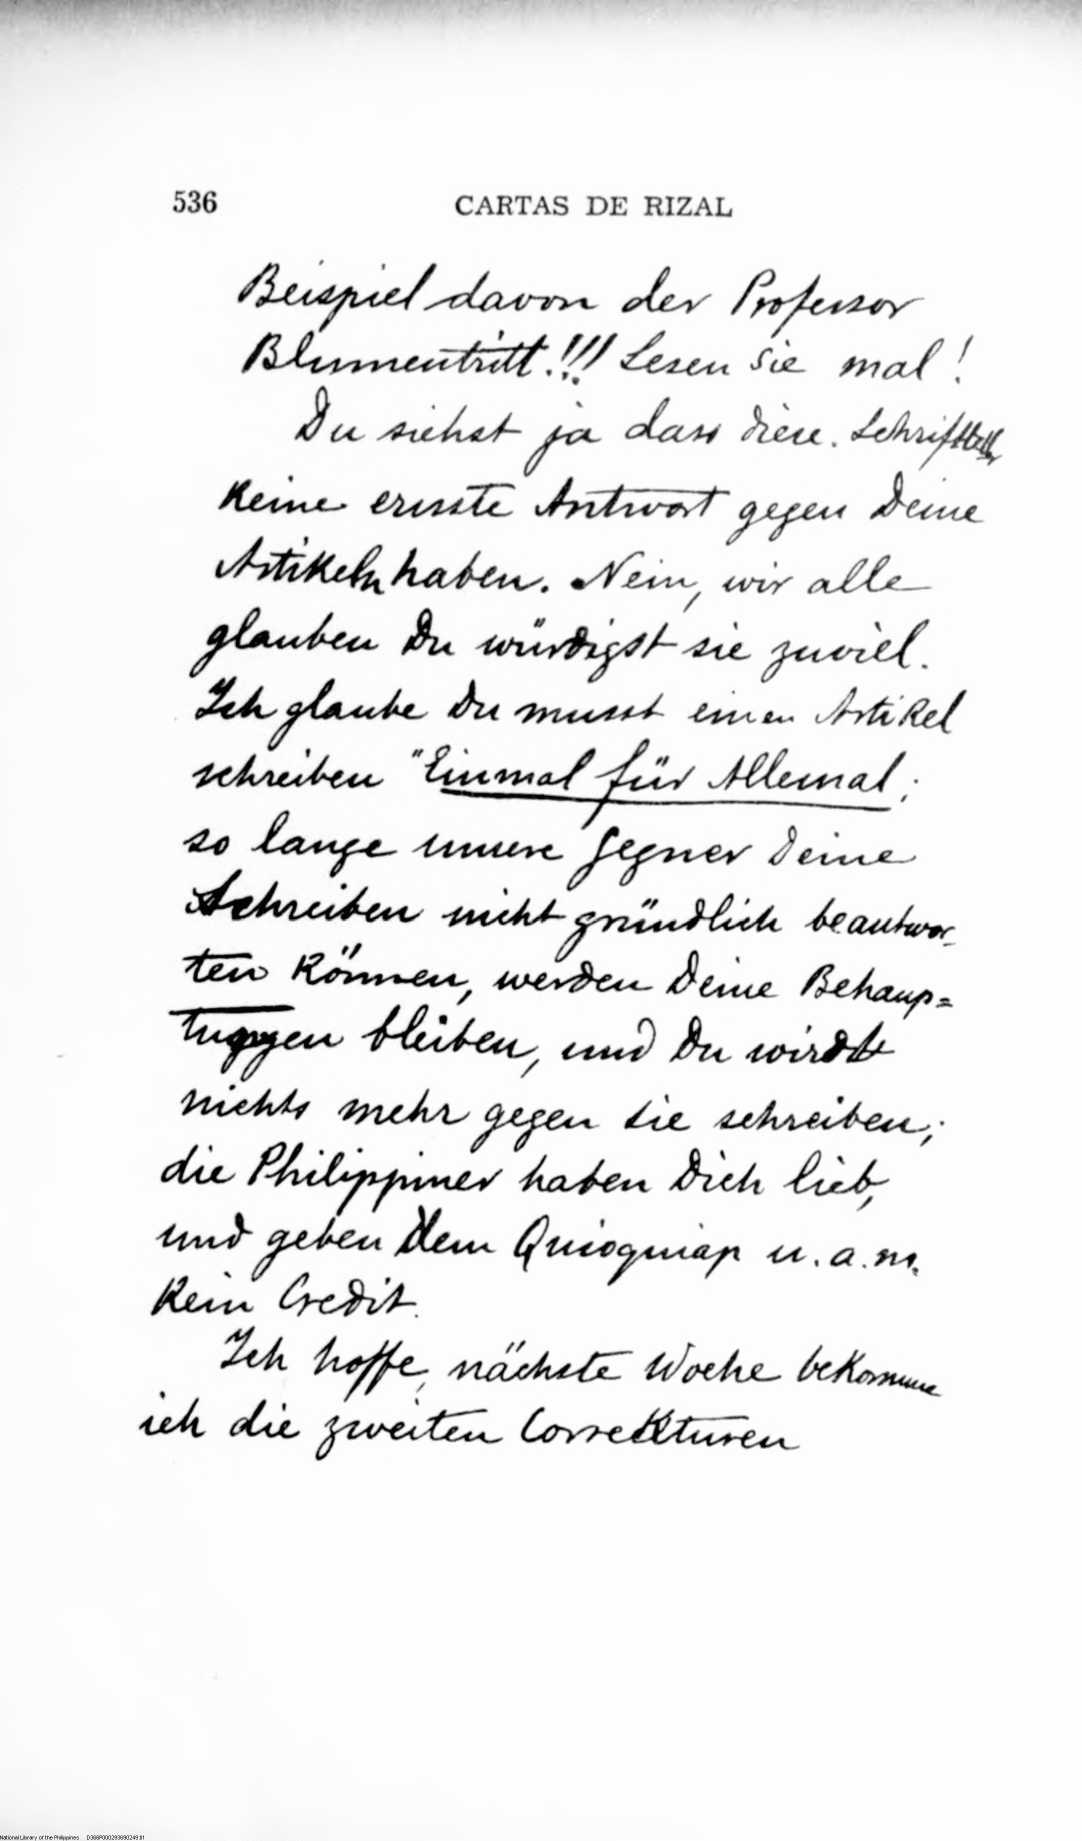 536 CARTAS DE RIZAL
Beispiel davon der Professor
Blumentritt!!! Lesen Sie mal!
Du siehst ja dass diese Schriftsteller
keine ernste Antwort gegen Deine
Artikeln haben. Nein, wir alle
glauben Du würdigst sie zuviel.
Ich glaube Du musst einen Artikel
schreiben "Einmal für Allemal;
so lange unsere Gegner Deine
Schreiben nicht gründlich beantwor-
ten können, werden Deine Behaup=
tungen bleiben, und Du wirst
nichts mehr gegen sie schreiben;
die Philippiner haben Dich lieb,
und geben dem Quioquiap u. a. m.
kein Credit.
Ich hoffe, nächste Woche bekomme
ich die zweiten Correkturen
National Library of the Philippines